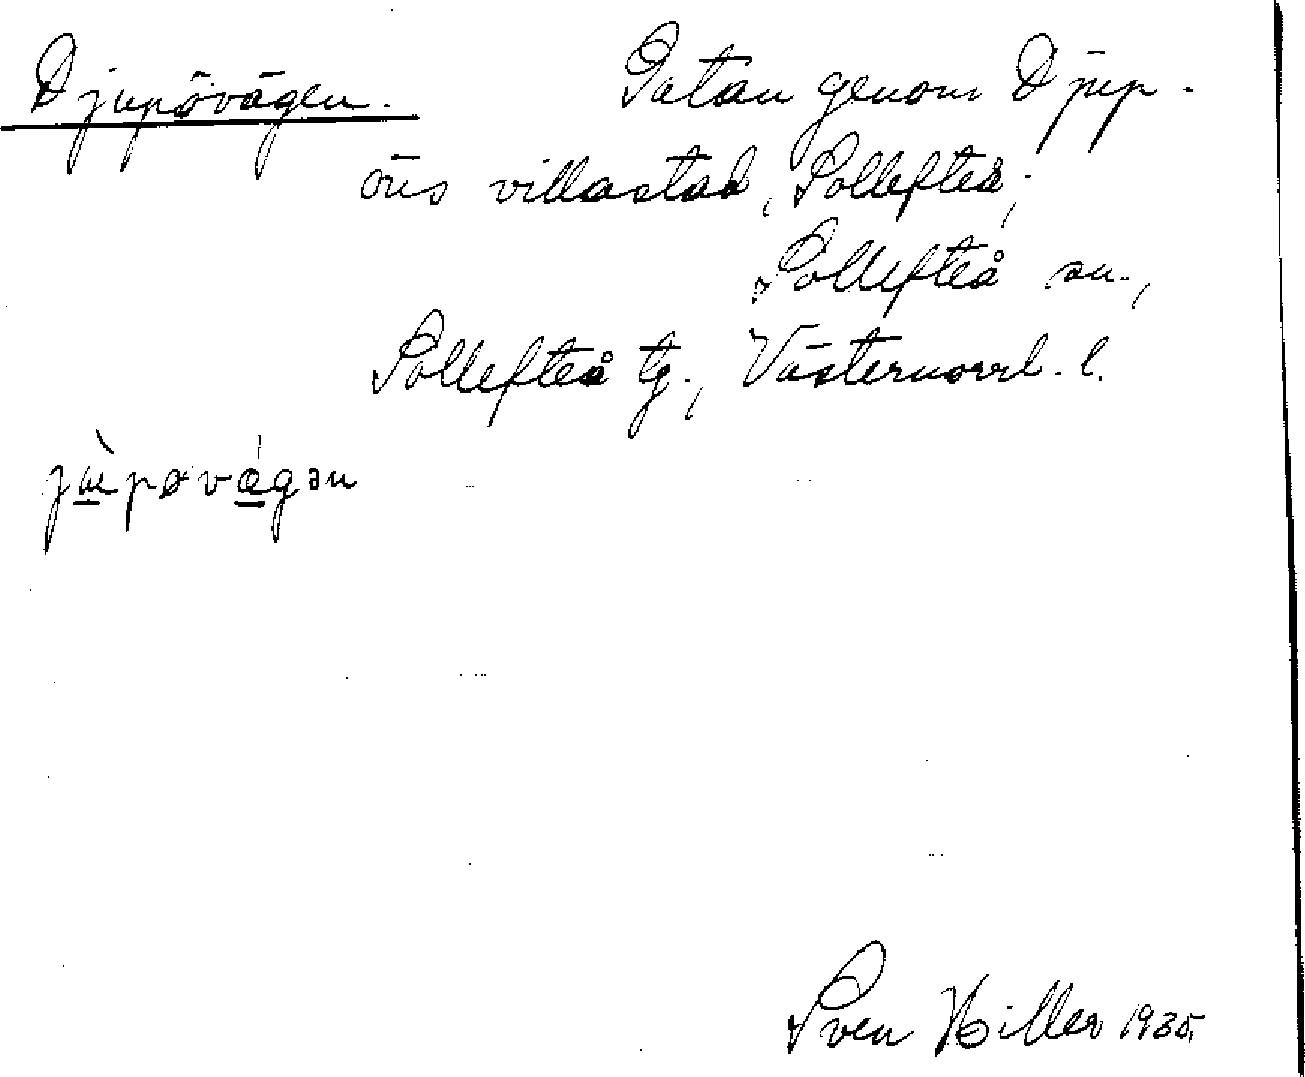 Djupövägen. Gatan genom Djup-
öns villastad, Sollefteå,
Sollefteå sn.,
Sollefteå tg., Västernorrl. l.
jùpøvǽgən
Sven Hiller 1935